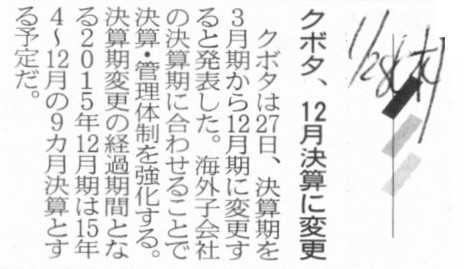 1/28(水)
クボタ、12月決算に変更
クボタは27日、決算期を
3月期から12月期に変更す
ると発表した。海外子会社
の決算期に合わせることで
決算・管理体制を強化する。
決算期変更の経過期間とな
る2015年12月期は15年
4〜12月の9カ月決算とす
る予定だ。